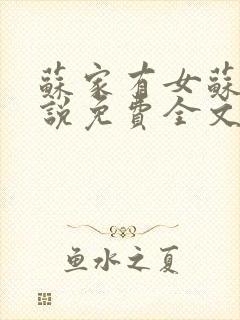 蘇家有女蘇
說免費全文
鱼水之夏